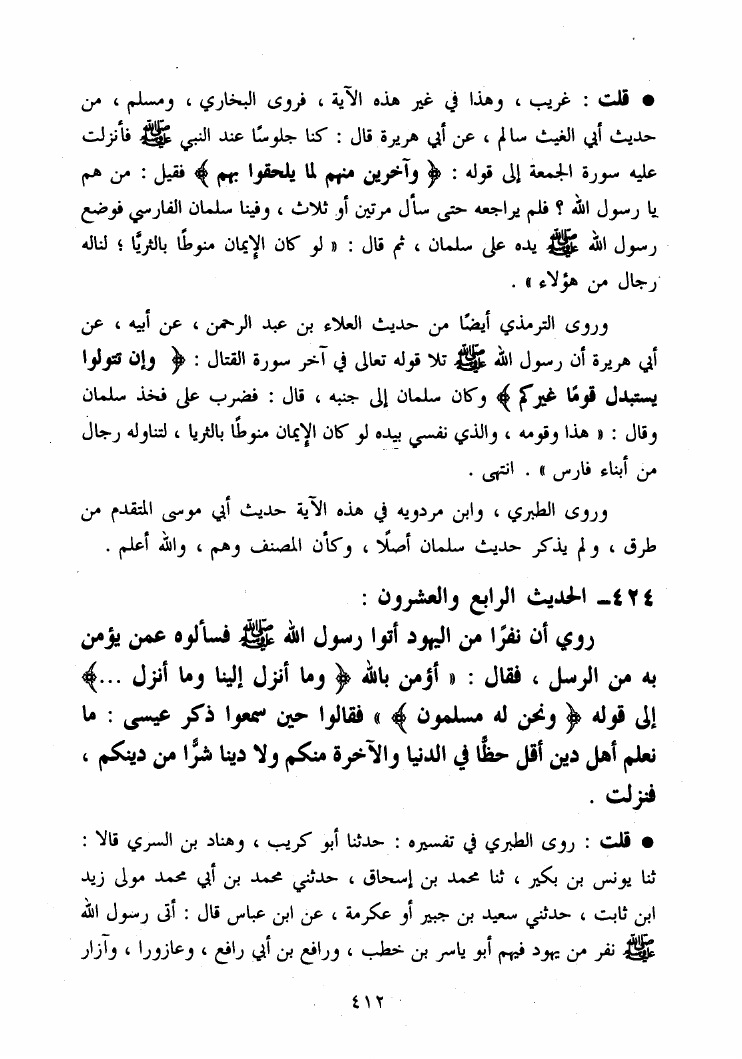 ● قلت : غريب ، وهذا في غير هذه الآية ، فروى البخاري ، ومسلم ، من
حديث أبي الغيث سالم ، عن أبي هريرة قال : كنا جلوسًا عند النبي ﷺ فأنزلت
عليه سورة الجمعة إلى قوله : ﴿ وآخرين منهم لما يلحقوا بهم ﴾ فقيل : من هم
يا رسول الله ؟ فلم يراجعه حتى سأل مرتين أو ثلاث ، وفينا سلمان الفارسي فوضع
رسول الله ﷺ يده على سلمان ، ثم قال : « لو كان الإيمان منوطًا بالثريَّا ؛ لناله
رجال من هؤلاء » .
وروى الترمذي أيضًا من حديث العلاء بن عبد الرحمن ، عن أبيه ، عن
أبي هريرة أن رسول الله ﷺ تلا قوله تعالى في آخر سورة القتال : ﴿ وإن تتولوا
يستبدل قومًا غيركم ﴾ وكان سلمان إلى جنبه ، قال : فضرب على فخذ سلمان
وقال : « هذا وقومه ، والذي نفسي بيده لو كان الإيمان منوطًا بالثريا ، لتناوله رجال
من أبناء فارس » . انتهى .
وروى الطبري ، وابن مردويه في هذه الآية حديث أبي موسى المتقدم من
طرق ، ولم يذكر حديث سلمان أصلًا ، وكأن المصنف وهم ، والله أعلم .
٤٢٤ـ الحديث الرابع والعشرون :
روي أن نفرًا من اليهود أتوا رسول الله ﷺ فسألوه عمن يؤمن
به من الرسل ، فقال : « أؤمن بالله ﴿ وما أنزل إلينا وما أنزل ...﴾
إلى قوله ﴿ ونحن له مسلمون ﴾ » فقالوا حين سمعوا ذكر عيسى : ما
نعلم أهل دين أقل حظًّا في الدنيا والآخرة منكم ولا دينا شرًّا من دينكم ،
فنزلت .
● قلت : روى الطبري في تفسيره : حدثنا أبو كريب ، وهناد بن السري قالا :
ثنا يونس بن بكير ، ثنا محمد بن إسحاق ، حدثني محمد بن أبي محمد مولى زيد
ابن ثابت ، حدثني سعيد بن جبير أو عكرمة ، عن ابن عباس قال : أتى رسول الله
ﷺ نفر من يهود فيهم أبو ياسر بن خطب ، ورافع بن أبي رافع ، وعازورا ، وآزار
٤١٢